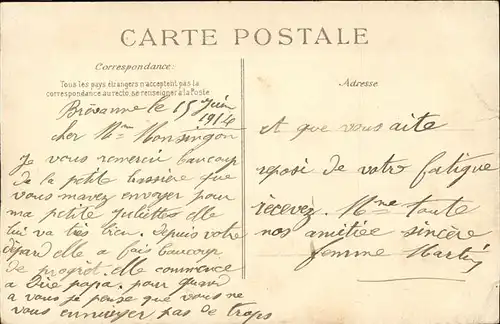 CARTE POSTALE
Correspondance:
Tous les pays étrangers n'acceptent pas la
correspondance au recto, se renseigner à la Poste
Adresse
Brévanne le 15 Juin
1914
cher Mme Monsingon
Je vous remercie baucoup
de la petite que
vous mavez envoyer pour
ma petite juliettes elle
lui va très bien. Depuis votre
départ elle a fais baucoup
de progrêt. elle commence
a dire papa. pour quand
a vous je pense que vous ne
vous ennuiyer pas de trops
et que vous aite
reposé de votre fatigue
recevez. Mme toute
nos amitiée sincère
femme Martin